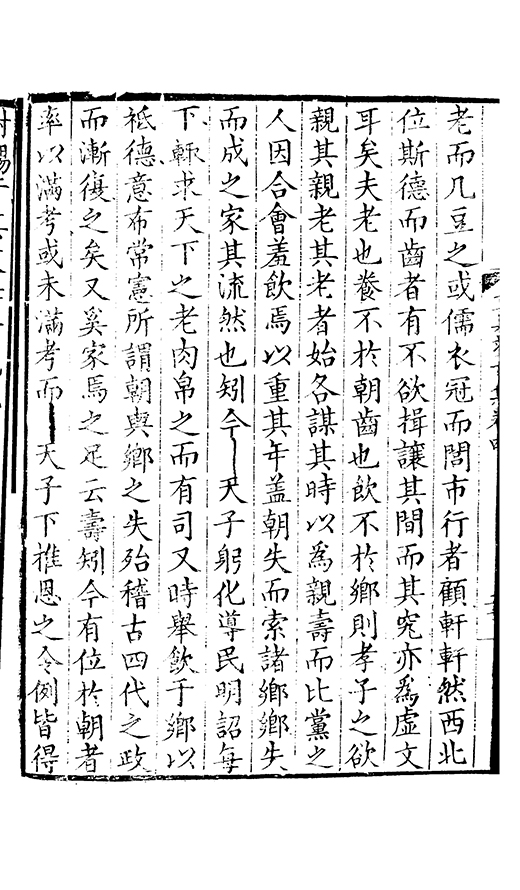 老而几豆之或儒衣冠而閭市行者顧軒軒然西北
位斯德而齒者有不欲揖讓其間而其究亦為虛文
耳矣夫老也養不於朝齒也飲不於鄉則孝子之欲
親其親老其老者始各謀其時以為親壽而比黨之
人因合會羞飲焉以重其年盖朝失而索諸鄉鄉失
而成之家其流然也矧今天子躬化導民明詔每
下輒求天下之老肉帛之而有司又時舉飲于鄉以
祗德意布常憲所謂朝與鄉之失殆稽古四代之政
而漸復之矣又奚家焉之足云壽矧今有位於朝者
率以滿考或未滿考而天子下推恩之令例皆得